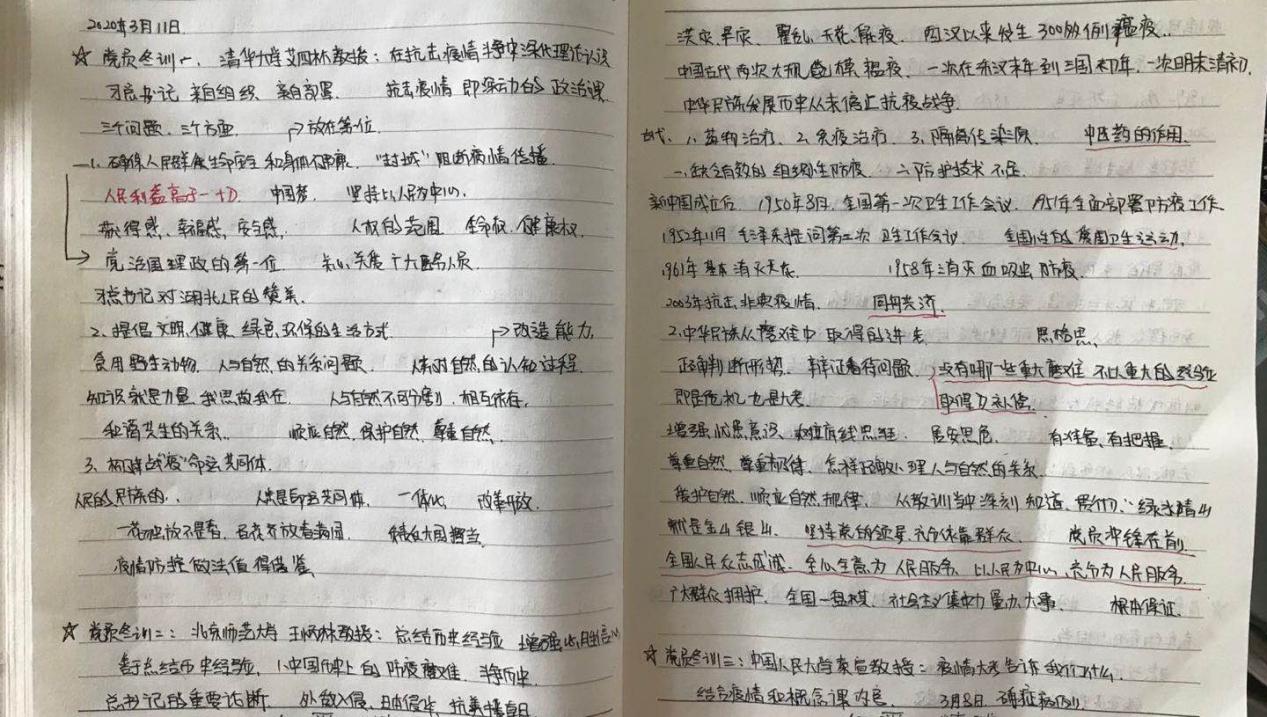 2020年3月11日.
☆ 党员冬训一、清华大学艾四林教授：在抗击疫情斗争中深化理论认识
习总书记 亲自组织 亲自部署. 抗击疫情 即 生动的 政治课.
三个问题、三个方面. →放在第一位.
1. 确保人民群众生命安全和身体健康. "封城" 阻断病情传播.
人民利益高于一切 中国梦. 坚持以人民为中心.
获得感、幸福感、安全感. 人权的范围 生命权、健康权.
党治国理政的第一位. 关心、关爱广大医务人员.
习总书记对湖北人民的赞美.
2. 提倡文明、健康 绿色、环保的生活方式. →改造能力.
食用野生动物. 人与自然的关系问题. 人类对自然的认知过程.
知识就是力量. 我思故我在. 人与自然不可分割、相互依存.
和谐共生的关系. 顺应自然、保护自然、尊重自然.
3. 构建战"疫"命运共同体.
人民的、民族的. 人类是命运共同体. 一体化. 改革开放.
一花独放不是春，百花齐放春满园. 大国担当.
疫情防控做法值得借鉴.
☆ 党员冬训二：北京师范大学 王炳林教授：总结历史经验 增强必胜信心
善于总结历史经验. 1.中国历史上的 防疫 斗争历史.
总书记的重要论断. 外敌入侵、日本侵华、抗美援朝.
洪灾、旱灾、霍乱、天花、鼠疫. 西汉以来发生300多例瘟疫.
中国古代两次大规模瘟疫. 一次在东汉末年到三国初年，一次明末清初.
中华民族发展历史从未停止抗疫战争.
古代：1.药物治疗. 2.免疫治疗. 3.隔离传染源. 中医药的作用.
一、缺乏有效的组织性防疫. 二、防护技术不足.
新中国成立后. 1950年8月. 全国第一次卫生工作会议. 1951年全面部署防疫工作.
1952年11月 毛泽东 第二次卫生工作会议. 全国性的爱国卫生运动.
1961年基本消灭天花. 1958年消灭血吸虫 防疫.
2003年抗击非典疫情. 同舟共济.
2.中华民族从磨难中取得的进步.
正确判断形势. 辩证看待问题. 没有哪一些重大磨难 不以重大的
即是危机也是大考. 取得了补偿.
增强忧患意识、树立底线思维. 居安思危. 有准备、有把握.
尊重自然、尊重规律. 怎样正确处理人与自然的关系.
保护自然、顺应自然规律. 从教训当中深刻知道、贯彻"绿水青山
就是金山银山. 坚持党的领导、充分依靠群众. 党员冲锋在前.
全国人民众志成城. 全心全意为人民服务. 以人民为中心，充分为人民服务.
广大群众拥护. 全国一盘棋. 社会主义集中力量办大事. 根本保证.
☆ 党员冬训三：中国人民大学秦宣教授：疫情大考告诉我们什么.
结合疫情和概念课内容. 3月8日. 确诊病例